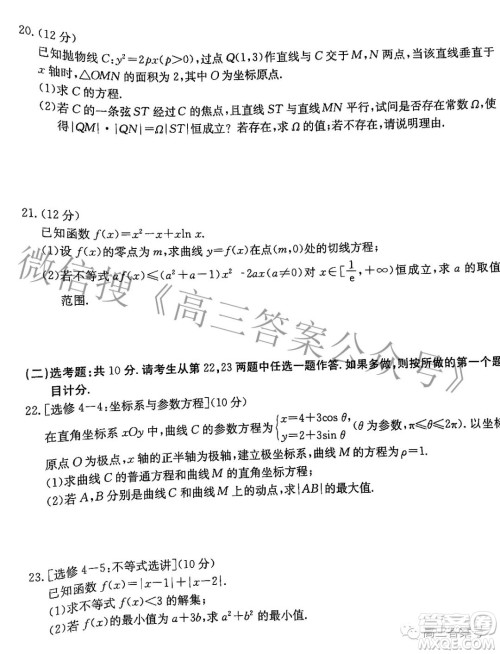 20.(12分)
已知抛物线C:y²=2px(p>0),过点Q(1,3)作直线与C交于M,N两点,当该直线垂直于
x轴时,△OMN的面积为2,其中O为坐标原点.
(1)求C的方程.
(2)若C的一条弦ST经过C的焦点,且直线ST与直线MN平行,试问是否存在常数Ω,使
得|QM|·|QN|=Ω|ST|恒成立?若存在,求Ω的值;若不存在,请说明理由.
21.(12分)
已知函数f(x)=x²-x+xln x.
(1)设f(x)的零点为m,求曲线y=f(x)在点(m,0)处的切线方程;
(2)若不等式af(x)≤(a²+a-1)x²-2ax(a≠0)对x∈[1/e,+∞)恒成立,求a的取值
范围.
(二)选考题:共10分.请考生从第22,23两题中任选一题作答.如果多做,则按所做的第一个题
目计分.
22.[选修4-4:坐标系与参数方程](10分)
在直角坐标系xOy中,曲线C的参数方程为{x=4+3cos θ, y=2+3sin θ (θ为参数,π≤θ≤2π).以坐标
原点O为极点,x轴的正半轴为极轴,建立极坐标系,曲线M的方程为ρ=1.
(1)求曲线C的普通方程和曲线M的直角坐标方程;
(2)若A,B分别是曲线C和曲线M上的动点,求|AB|的最大值.
23.[选修4-5:不等式选讲](10分)
已知函数f(x)=|x-1|+|x-2|.
(1)求不等式f(x)<3的解集;
(2)若f(x)的最小值为a+3b,求a²+b²的最小值.
微信搜《高三答案公众号》
高三答案号